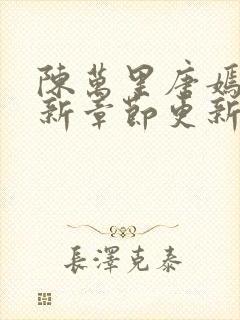 陳萬里唐嫣
新章節更新
長澤克泰